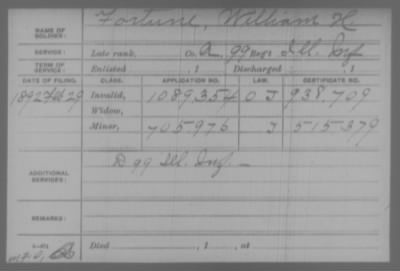 NAME OF SOLDIER: Fortune, William H.
SERVICE: Late rank, Co. A, 99 Reg't Ill. Inf
TERM OF SERVICE: Enlisted , 1 Discharged , 1
DATE OF FILING. CLASS. APPLICATION NO. LAW. CERTIFICATE NO.
1892 29 Invalid, 1089354 938.709
Widow,
Minor, 705976 J 515379
ADDITIONAL SERVICES: D 99 Ill. Inf. —
REMARKS:
Died , 1 , at